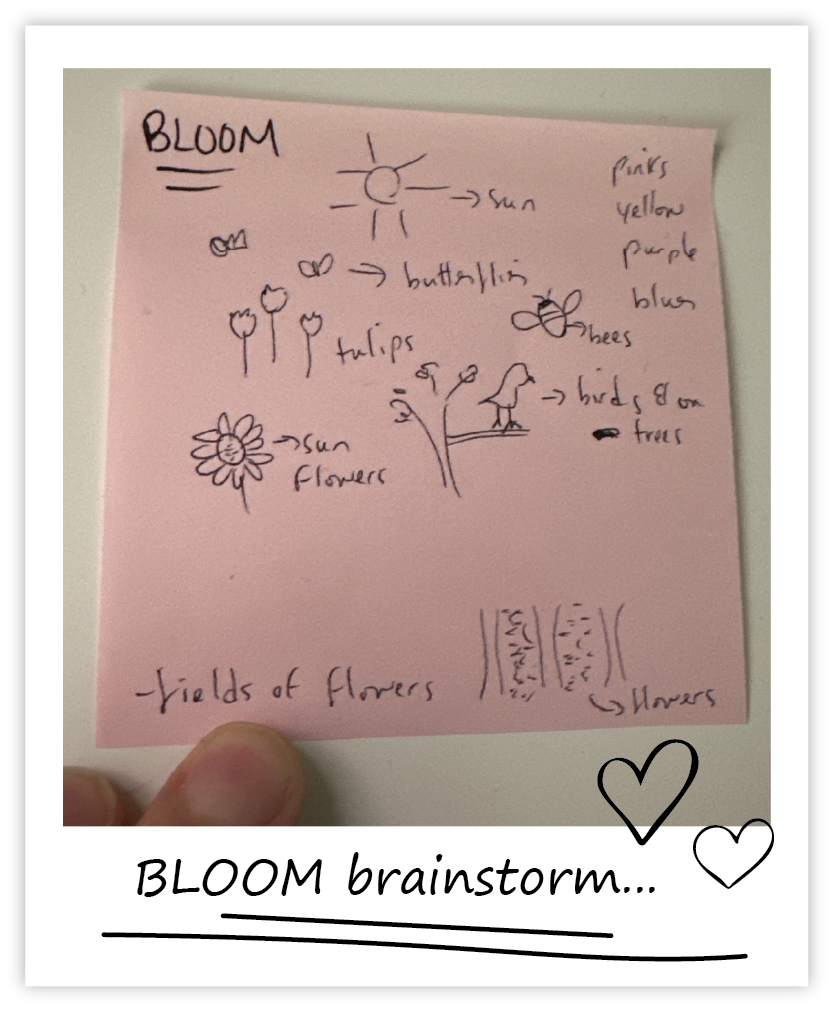 BLOOM
sun
pinks
yellow
purple
blues
butterflies
bees
tulips
birds & on
trees
sun
flowers
-fields of flowers
flowers
BLOOM brainstorm...